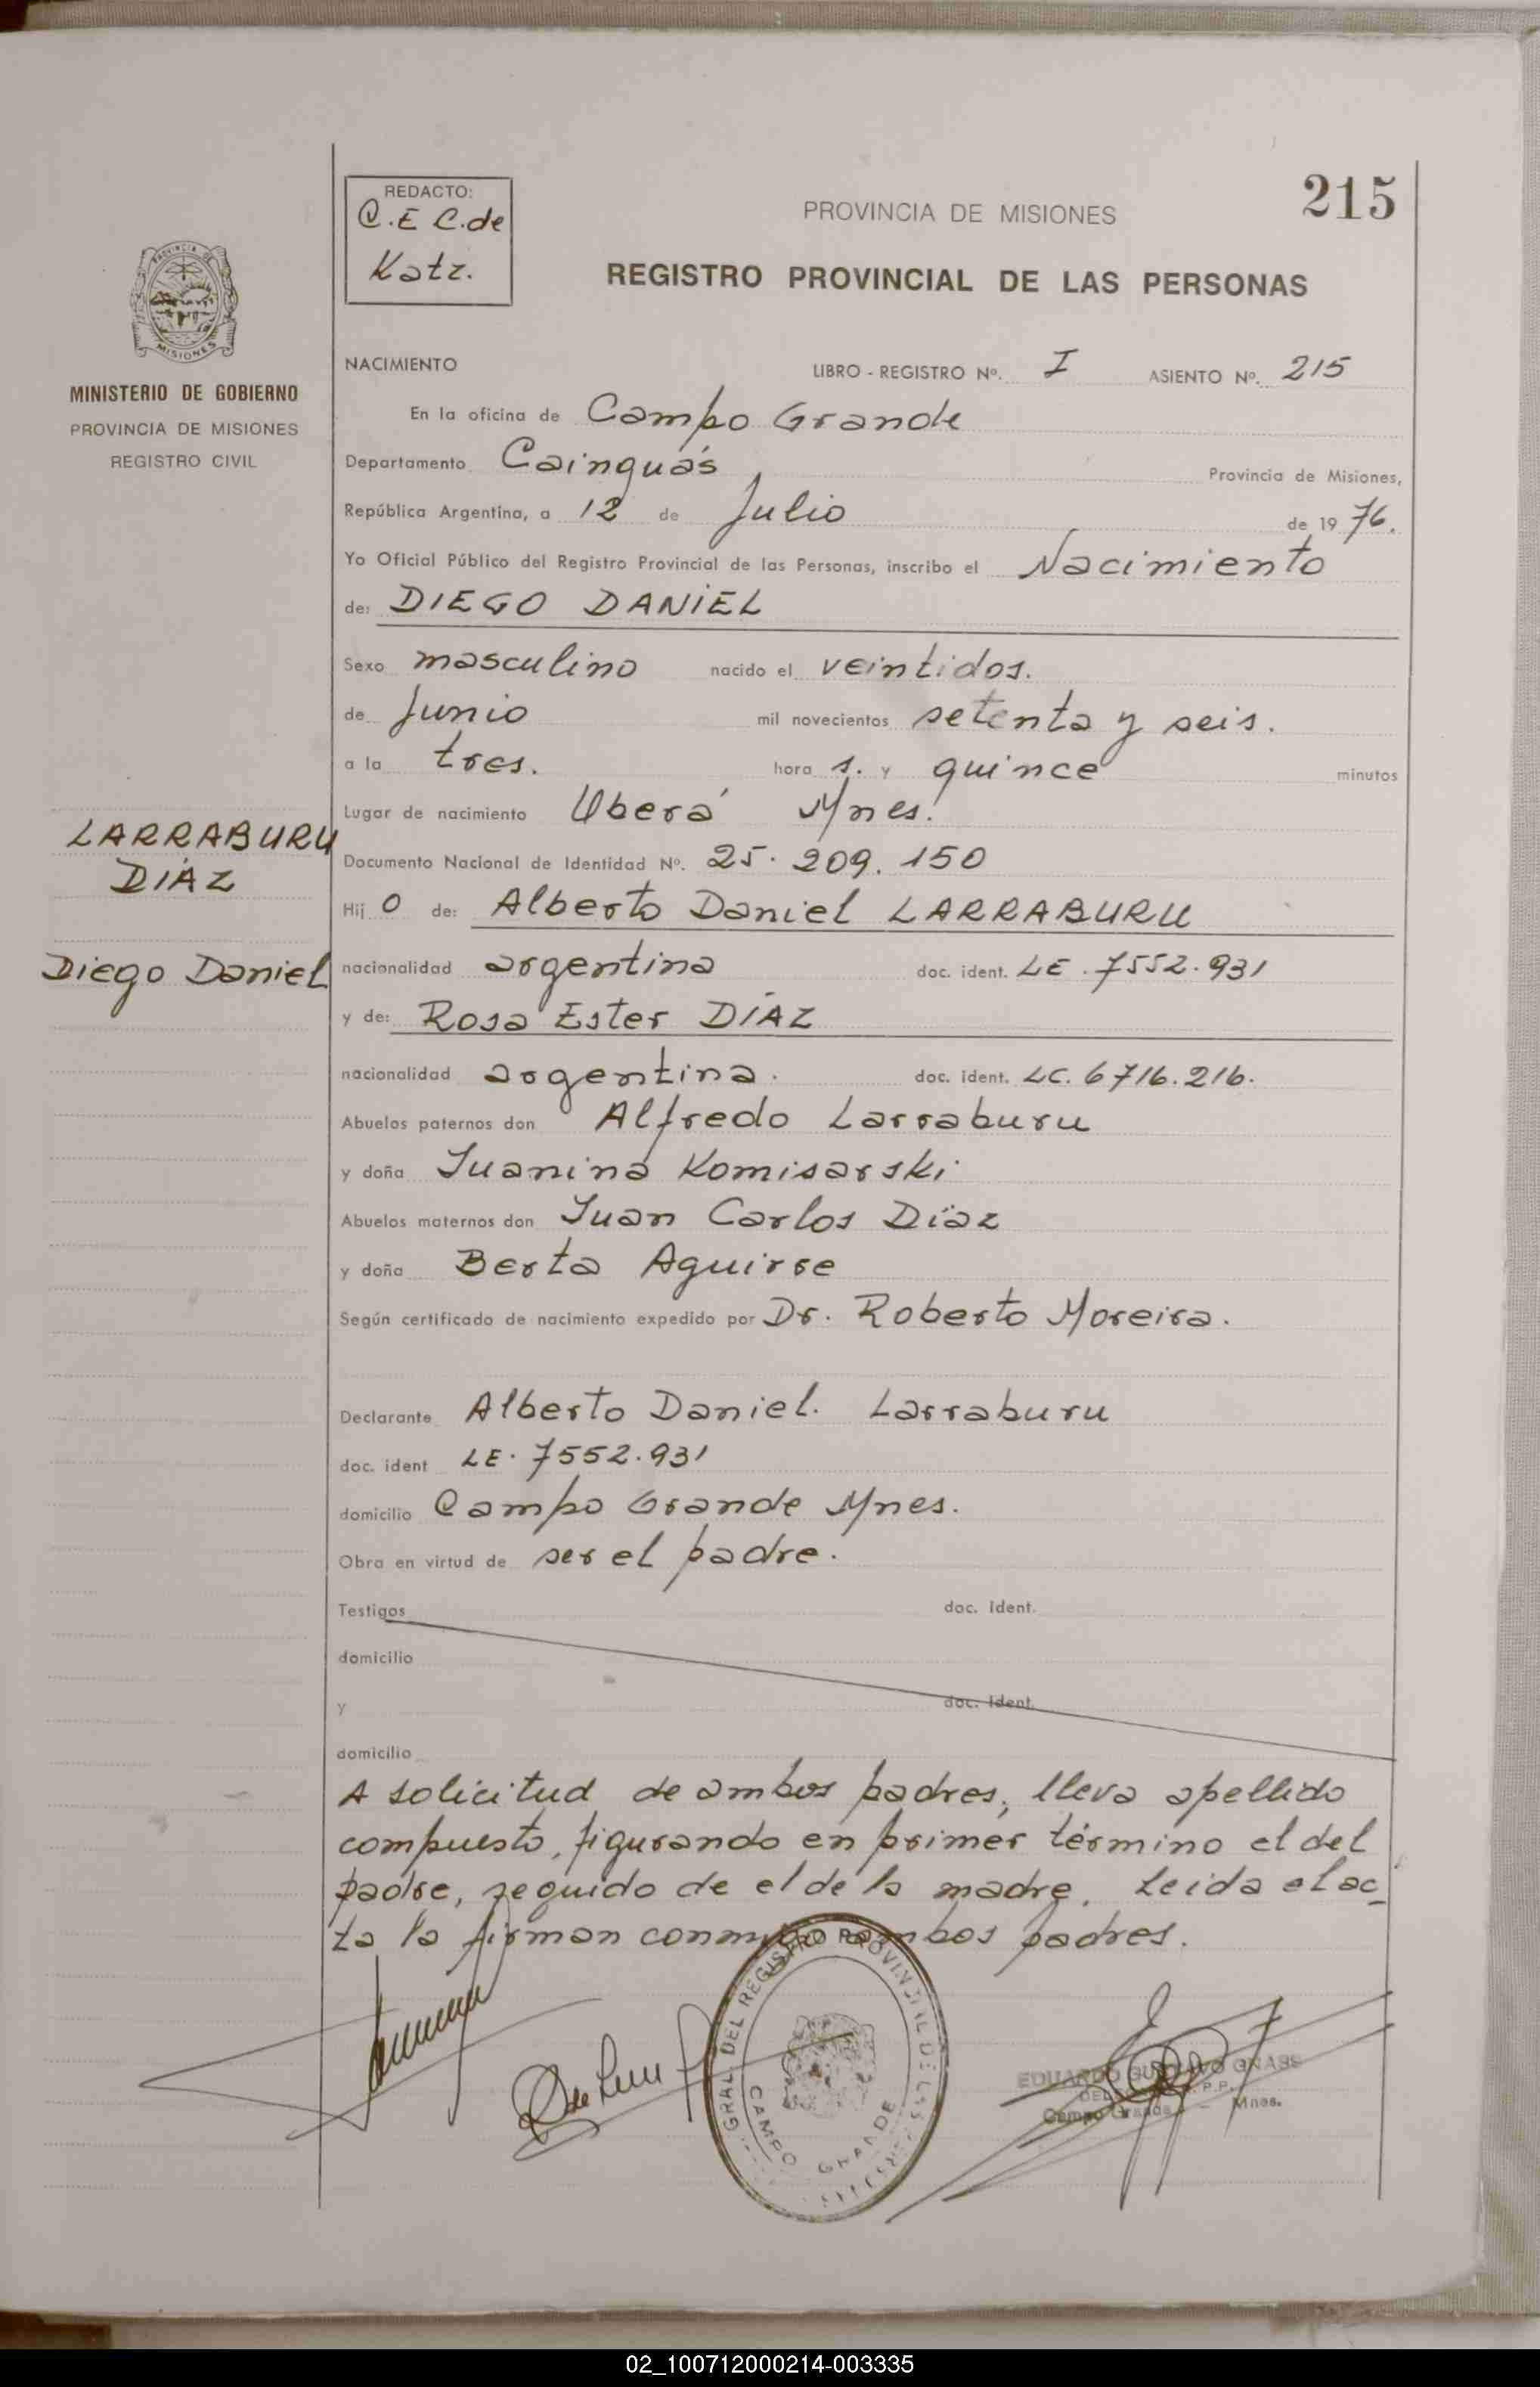 215
REDACTO:
C.E C.de
Katz.
PROVINCIA DE MISIONES
REGISTRO PROVINCIAL DE LAS PERSONAS
PROVINCIA DE
MISIONES
MINISTERIO DE GOBIERNO
PROVINCIA DE MISIONES
REGISTRO CIVIL
NACIMIENTO LIBRO - REGISTRO Nº. I ASIENTO Nº. 215
En la oficina de Campo Grande
Departamento Cainguás Provincia de Misiones,
República Argentina, a 12 de Julio de 19 76.
Yo Oficial Público del Registro Provincial de las Personas, inscribo el Nacimiento
de: DIEGO DANIEL
Sexo masculino nacido el veintidos.
de Junio mil novecientos setenta y seis.
a la tres. hora s. y quince minutos
Lugar de nacimiento Oberá Mnes.
LARRABURU
DÍAZ
Diego Daniel
Documento Nacional de Identidad Nº. 25.209.150
Hij o de: Alberto Daniel LARRABURU
nacionalidad argentina doc. ident. LE.7552.931
y de: Rosa Ester DÍAZ
nacionalidad argentina. doc. ident. LC.6716.216.
Abuelos paternos don Alfredo Larraburu
y doña Juanina Komisarski
Abuelos maternos don Juan Carlos Díaz
y doña Berta Aguirre
Según certificado de nacimiento expedido por Dr. Roberto Moreira.
Declarante Alberto Daniel. Larraburu
doc. ident LE.7552.931
domicilio Campo Grande Mnes.
Obra en virtud de ser el padre.
Testigos doc. ident.
domicilio
y doc. ident.
domicilio
A solicitud de ambos padres, lleva apellido
compuesto, figurando en primer término el del
padre, seguido de el de la madre. Leida el ac_
ta la firman conmigo ambos padres.
GRAL. DEL REGISTRO PROVINCIAL DE LAS PERSONAS
CAMPO GRANDE
EDUARDO GUSTAVO GNASS
Campo Grande - Mnes.
02_100712000214-003335